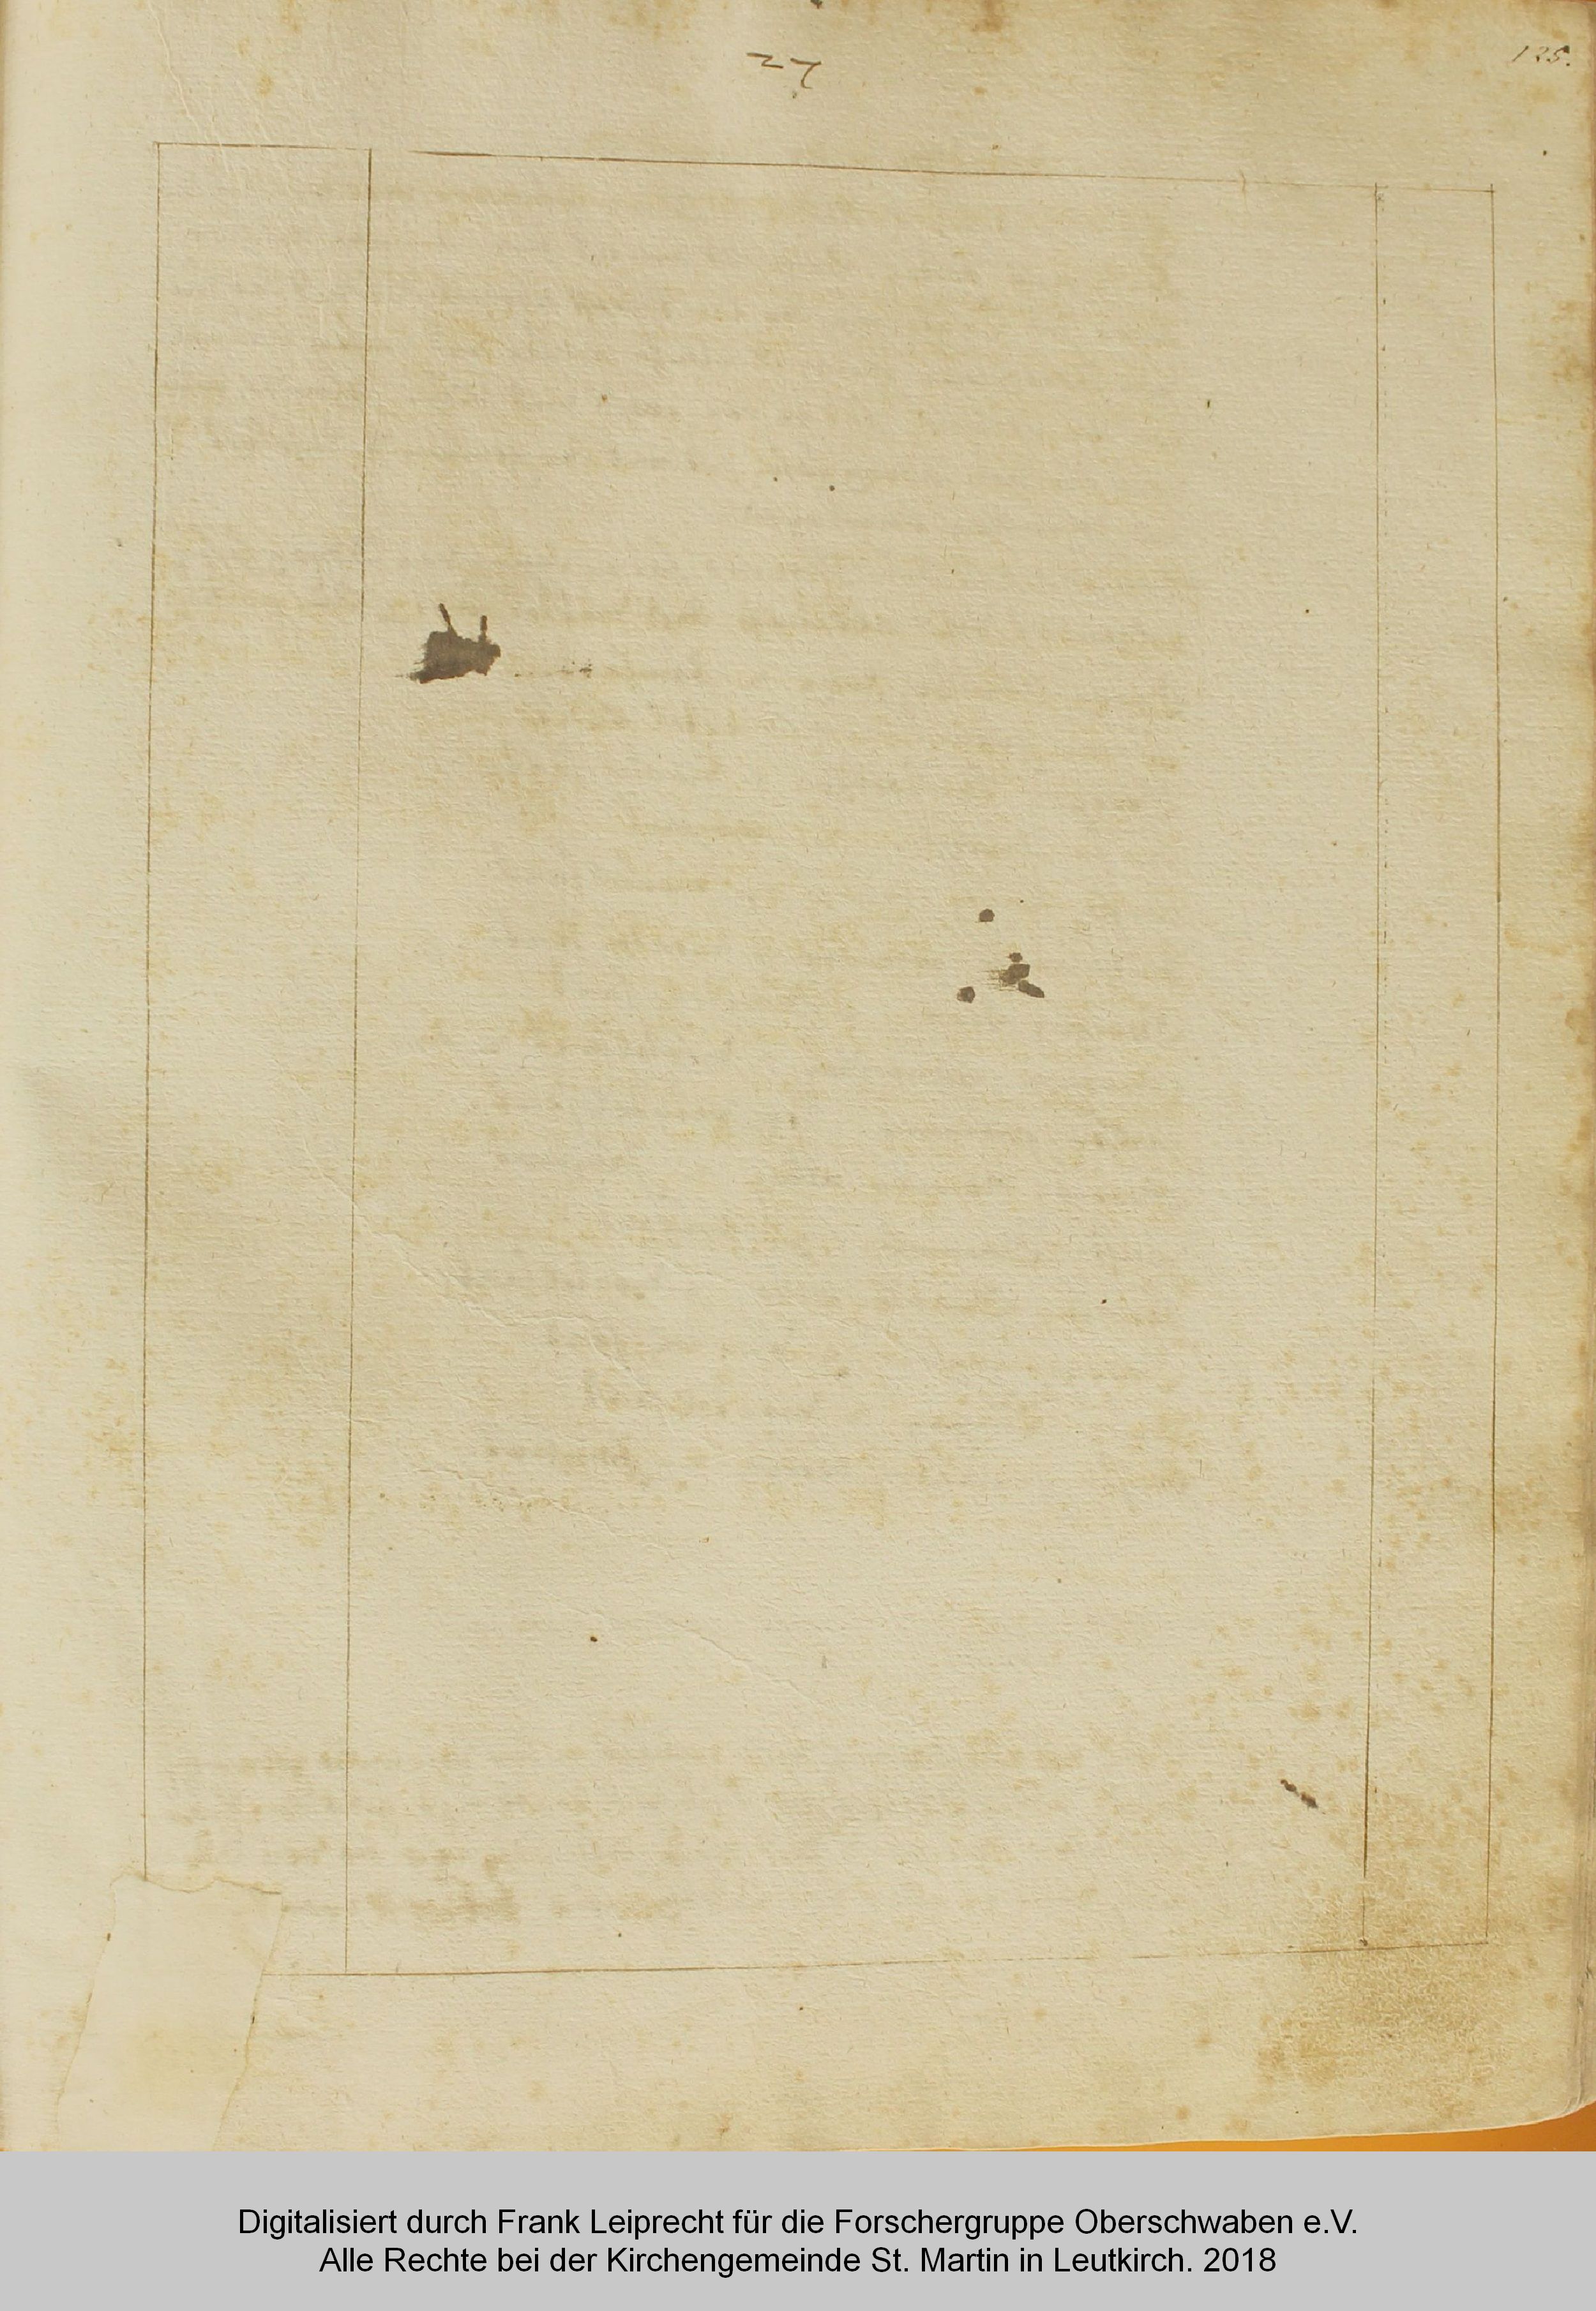 27
125.
Digitalisiert durch Frank Leiprecht für die Forschergruppe Oberschwaben e.V.
Alle Rechte bei der Kirchengemeinde St. Martin in Leutkirch. 2018